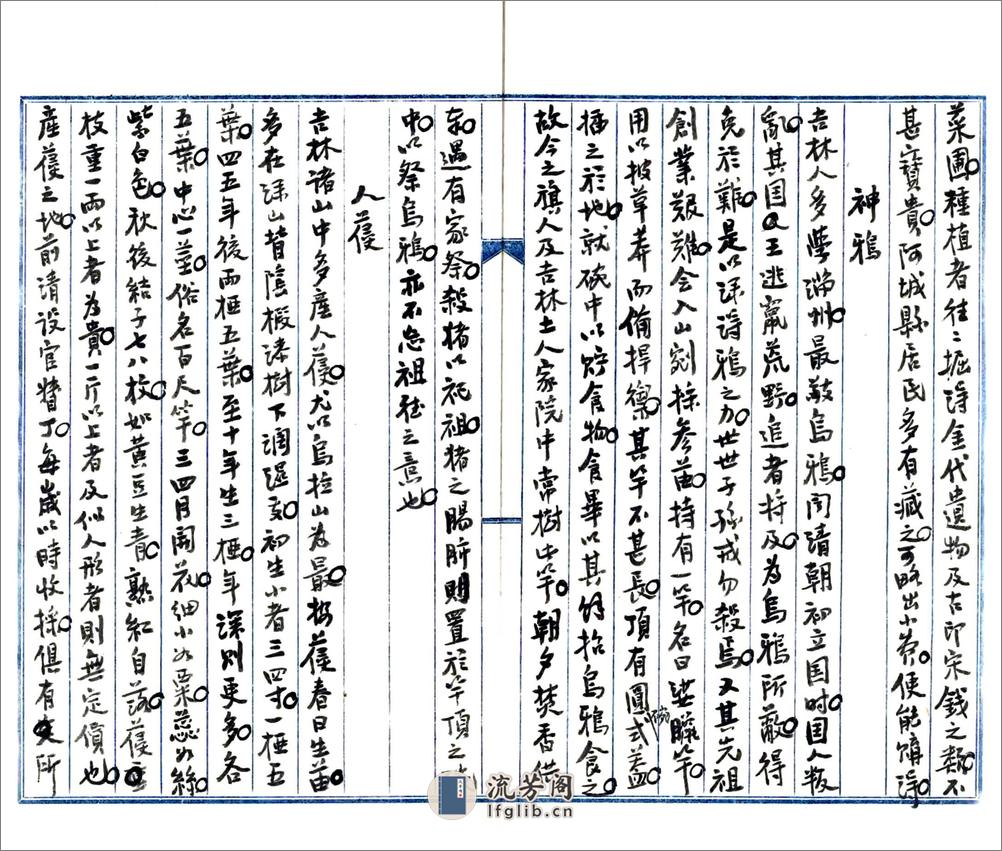 菜圃。種植者往二掘得金代遺物及古印宋錢之類。不
甚寶貴。阿城縣居民多有藏之。可略出小券。便能購得
神鴉
吉林人多隸滿州。最敬烏鴉。聞清朝初立国时。国人叛
亂。其国王逃竄荒野。追者將及。為烏鴉所蔽。得
免於難。是以謀謝鴉之力。世世子孫戒勿殺焉。又其先祖
創業艱難。会入山剜採參苗。持有一竿。名曰
用以披草莽而備捍禦。其竿不甚長。頂有圓式碗蓋。
插之於地。就碗中以貯食物。食畢以其餘招烏鴉食之
故今之旗人及吉林土人家院中常樹此竿。朝夕焚香供
奉。遇有家祭。殺猪以祀祖。猪之腸肺則置於竿頂之
中。以祭烏鴉。亦不忘祖德之意也。
人葠
吉林諸山中多産人葠。尤以烏拉山為最。葠春日生苗。
多在深山背陰椴漆樹下濕處。初生小者三四寸。一椏五
葉。四五年後兩椏五葉。至十年生三椏。年深則更多。各
五葉。中心一莖。俗名百尺竿。三四月開花。細小如粟。蕊如絲
紫白色。秋後結子。七八枚如黃豆。生青。熟紅自落。葠
枝重一兩以上者為貴。一斤以上者及似人形者則無定價也。
産葠之地。前清設官督丁。每歲以時收採。俱有所
流芳阁
lfglib.cn